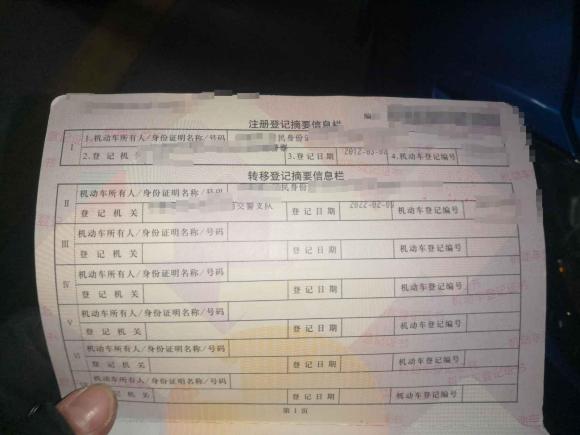 编
注册登记摘要信息栏
I 1.机动车所有人/身份证明名称/号码 民身份
2.登记机 3.登记日期 4.机动车登记编号
转移登记摘要信息栏
II 机动车所有人/身份证明名称/号码 民身份
登记机关 交警支队 登记日期 机动车登记编号
III 机动车所有人/身份证明名称/号码
登记机关 登记日期 机动车登记编号
IV 机动车所有人/身份证明名称/号码
登记机关 登记日期 机动车登记编号
V 机动车所有人/身份证明名称/号码
登记机关 登记日期 机动车登记编号
VI 机动车所有人/身份证明名称/号码
登记机关 登记日期 机动车登记编号
VII 机动车所有人/身份证明名称/号码
登记机关 登记日期 机动车登记编号
第1页